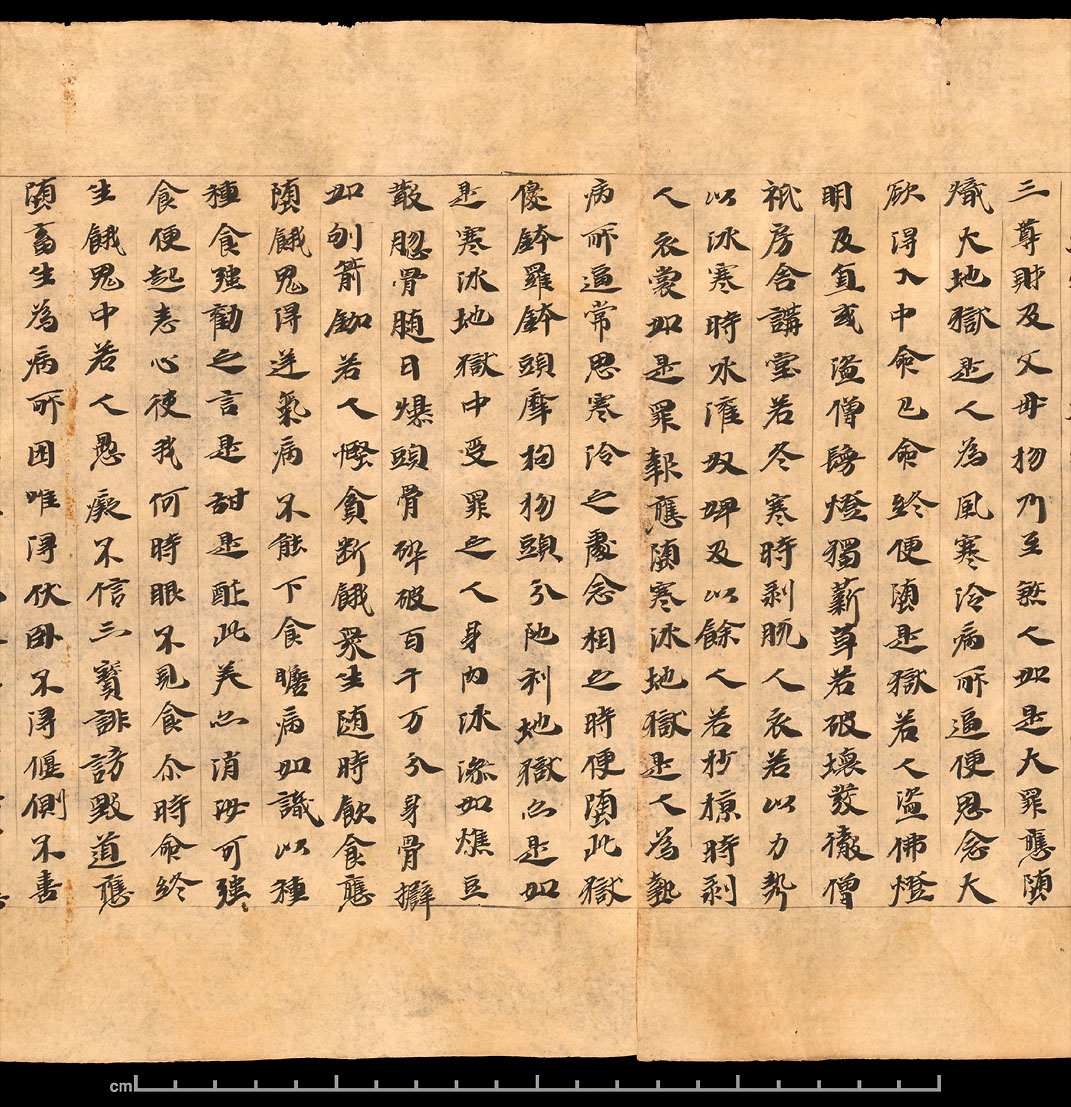 三尊財及父母物乃至煞人如是大罪應墮
熾大地獄是人為風寒冷病所逼便思念大
欲得入中命已命終便墮是獄若人盜佛燈
明及直或盜僧騰燈獨薪草若破壞發徹僧
祇房舍講堂若冬寒時剥脱人衣若以力勢
以冰寒時水灌奴婢及以餘人若抄掠時剥
人衣裳如是罪報應墮寒冰地獄是人為熱
病所逼常思寒冷之處念相之時便墮此獄
優鉢羅鉢頭摩拘物頭分陁利地獄亦是如
是寒冰地獄中受罪之人身肉冰滲如燋豆
散惣骨腦日爆頭骨碎破百千万分身骨擗
如刨箭鉫若人慳貪断餓衆生随時飲食應
墮餓鬼得逆氣病不能下食瞻病如識以種
種食強勸之言是甜是酢此美亦消汝可強
食便起恚心使我何時眼不見食尒時命終
生餓鬼中若人愚癡不信三寳誹謗毀道應
墮畜生為病所困唯得伏卧不得偃側不喜